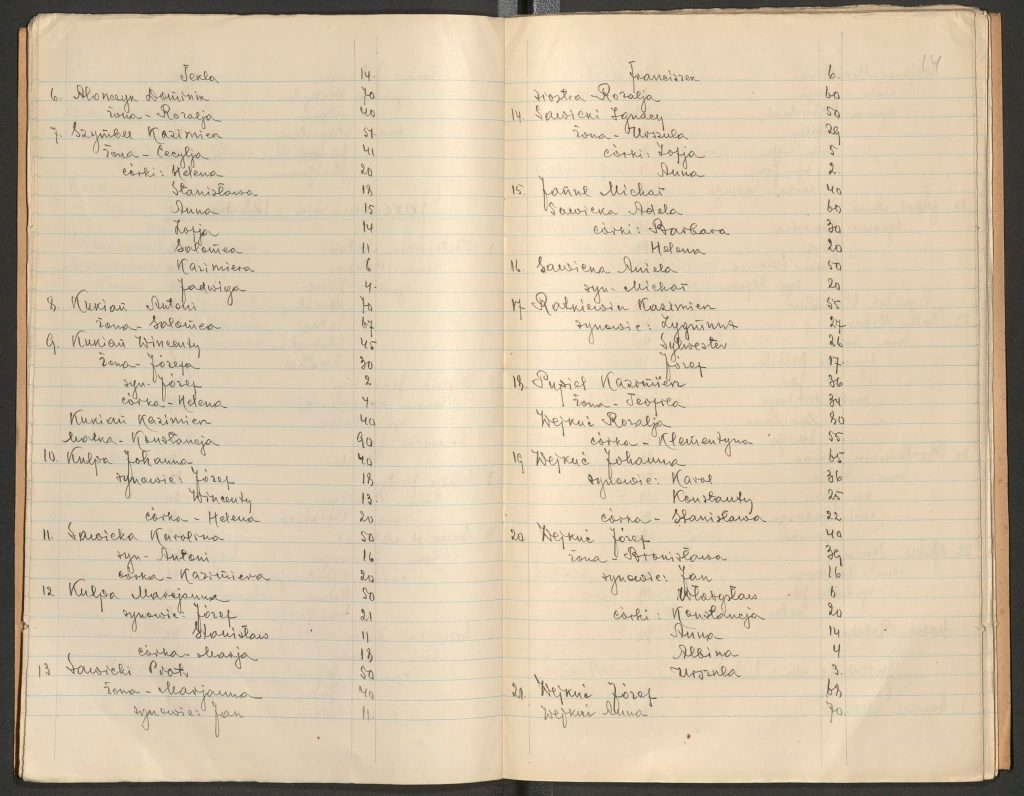 Tekla 14.
6. Alończyk Dominik 70
żona - Rozalja 40
7. Szymbel Kazimierz 51
żona - Cecylja 41
córki: Helena 20
Stanisława 18
Anna 15
Zofja 14
Salomea 11
Kazimiera 6
Jadwiga 4.
8. Kukiań Antoni 70
żona - Salomea 67
9. Kukiań Wincenty 45
żona - Józefa 30
syn - Józef 2
córka - Helena 4.
Kukiań Kazimierz 40
Matka - Konstancja 90
10. Kulpa Johanna 40
synowie: Józef 18
Wincenty 13.
córka - Helena 20
11. Sawicka Karolina 50
syn - Antoni 16
córka - Kazimiera 20
12 Kulpa Marejanna 50
synowie: Józef 21
Stanisław 11
córka - Marja 18
13 Sawicki Piotr 50
żona - Marjanna 40
synowie: Jan 11.
64
Franciszek 6.
siostra - Rozalja 60
14. Sawicki Ignacy 50
żona - Urszula 29
córki: Zofja 5
Anna 2.
15. Michał 40
Sawicka Adela 60
córki: Barbara 30
Helena 20
16. Sawicka Aniela 50
syn - Michał 20
17. Ratkiewicz Kazimierz 55
synowie: Zygmunt 27
Sylwester 26
Józef 17.
18. Pupiel Kazimierz 36
żona - Teofila 34
Wejkuć Rozalja 80
córka - Klementyna 55.
19 Wejkuć Johanna 65
synowie: Karol 36
Konstanty 25
córka - Stanisława 22
20. Wejkuć Józef 40
żona - Bronisława 39
synowie: Jan 16
Władysław 6
córki: Konstancja 20
Anna 14
Albina 4
Urszula 3.
21. Wejkuć Józef 68
Wejkuć Anna 70